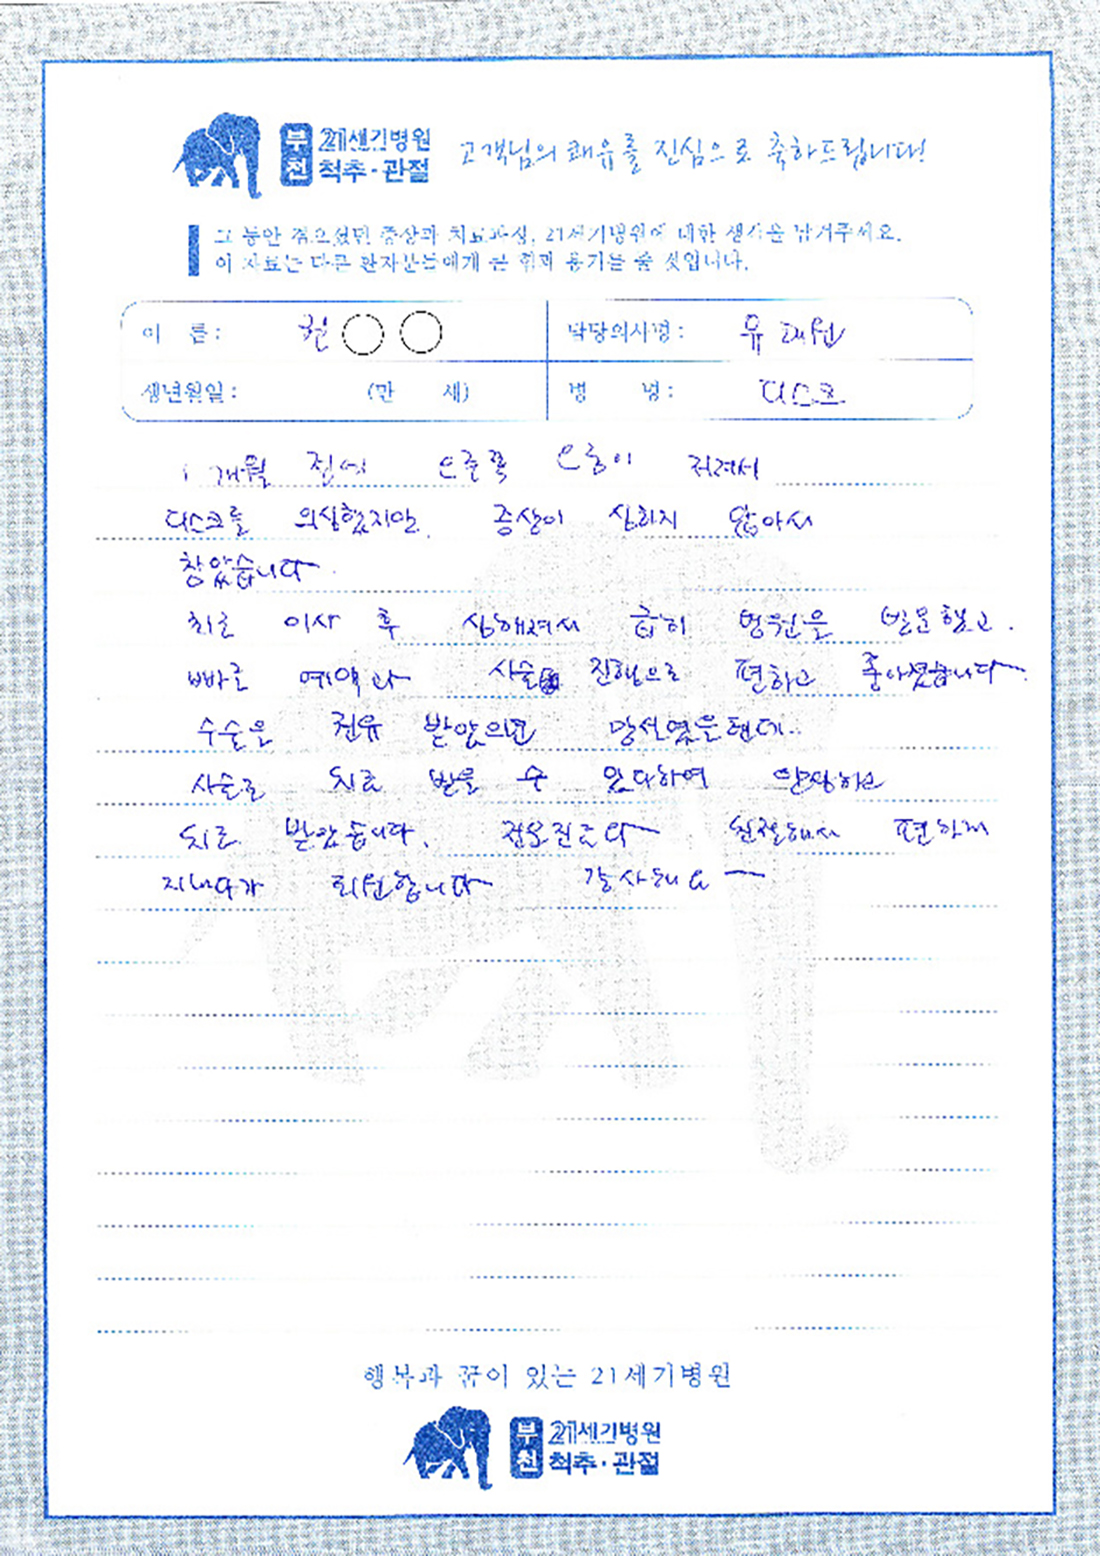 부천 21세기병원
척추·관절
고객님의 쾌유를 진심으로 축하드립니다!
그 동안 겪으셨던 증상과 치료과정, 21세기병원에 대한 생각을 남겨주세요.
이 자료는 다른 환자분들에게 큰 힘과 용기를 줄 것입니다.
이 름 : 권○○ 담당의사명 :
생년월일 : (만 세) 병 명 : 디스크
1개월 전에 오른쪽 저려서
디스크를 의심했지만. 증상이 심하지 않아서
참았습니다.
최근 이사 후 심해져서 급히 병원을 방문했고.
빠른 예약과 시술 진행으로 편하고 좋아졌습니다~
수술을 권유 받았으면 망설였을텐데..
시술로 치료 받을 수 있다하여 안심하고
치료 받았습니다. 친절해서 편하게
지내다가 퇴원합니다~ 감사해요~
행복과 꿈이 있는 21세기병원
부천 21세기병원
척추·관절